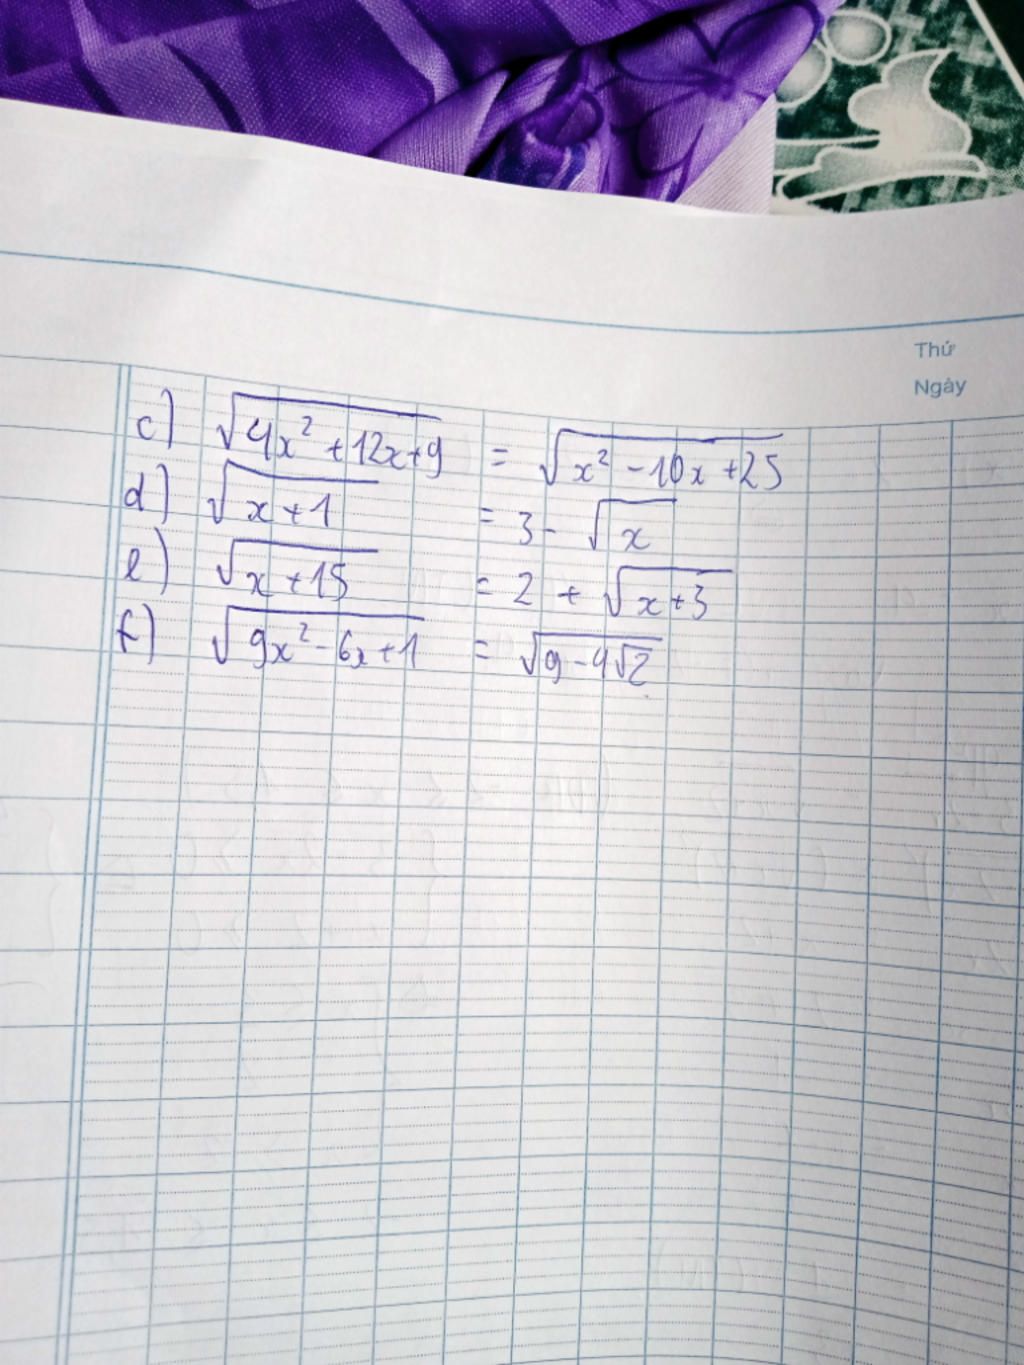 Thứ
Ngày
c) √(4x² + 12x + 9) = √(x² - 10x + 25)
d) √(x + 1) = 3 - √x
e) √(x + 15) = 2 + √(x + 3)
f) √(9x² - 6x + 1) = √(9 - 4√2)